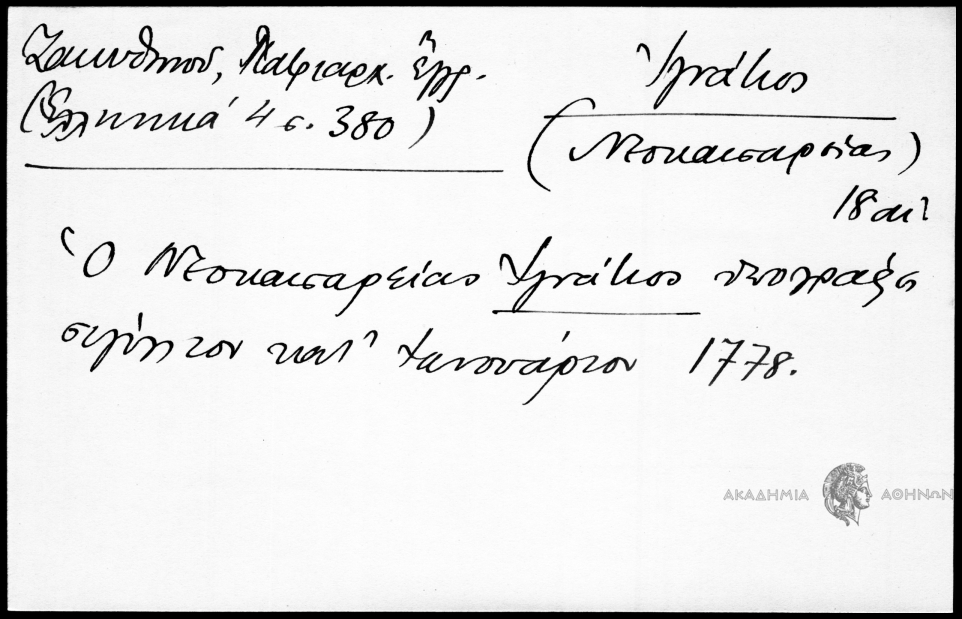 Ζακυνθηνοῦ, Πατριαρχ. ἔγγρ.
(Ἑλληνικά 4 σ. 380)
Ἰγνάτιος
(Νεοκαισαρείας)
18 αι
Ὁ Νεοκαισαρείας Ἰγνάτιος υπογράφει
σιγίλλιον κατ' Ἰανουάριον 1778.
ΑΚΑΔΗΜΙΑ ΑΘΗΝΩΝ